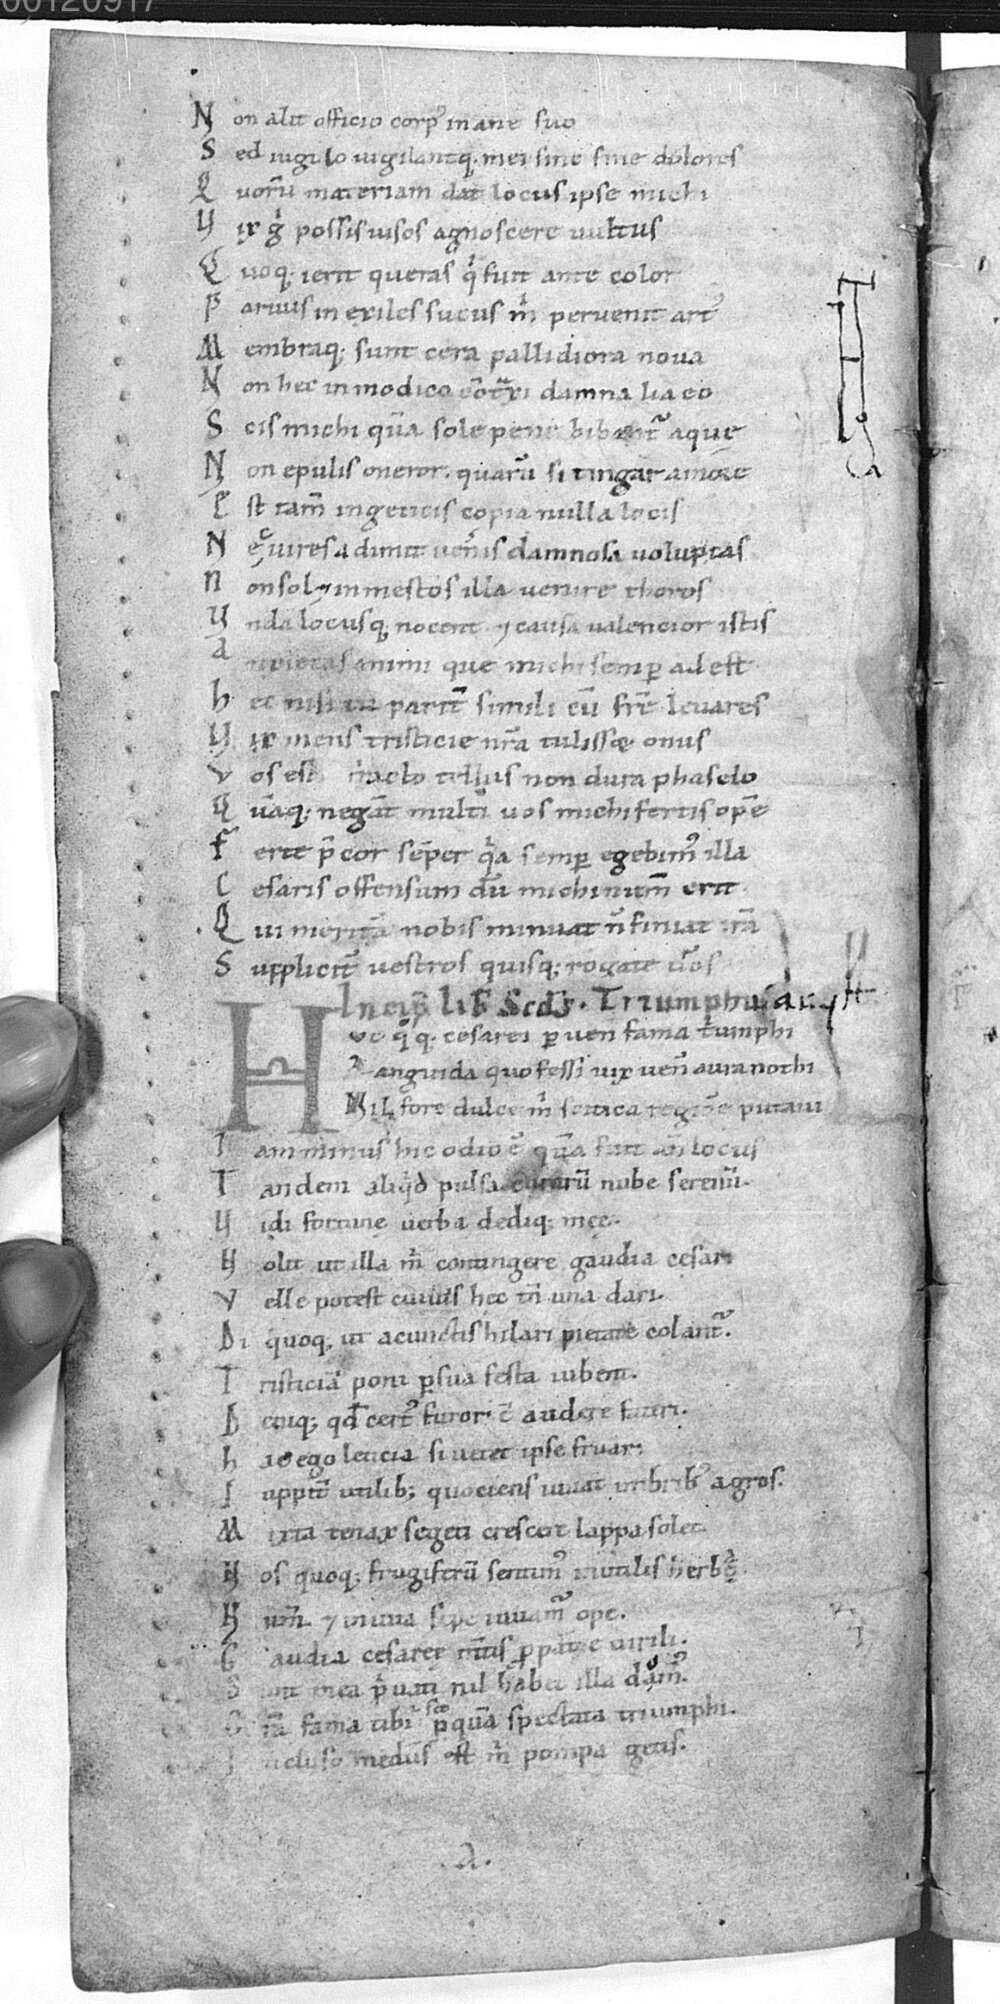 00120917
Non alit officio corpꝰ inane suo
Sed uigilo uigilantq; mei sine fine dolores
Quoru᷑ materiam dat locus ipse michi
Vix gͥ possis uisos agnoscere uultus
Quoq; ierit queras qͥ fuit ante color
Paruus in exiles sucus mͥ peruenit artꝰ
Membraq; sunt cera pallidiora noua
Non hec inmodico damna lia eo
Scis michi qua̅ sole pene aquę
Non epulis oneror. quaru̅ si tingar amore
Est tam̅ in geticis copia nulla locis
Nec uires adimit uen̅is damnosa uoluptas
Non sol& inmestos illa uenire thoros
Vnda locusq; nocent ⁊ causa ualencior istis
Anxietas animi que michi semꝑ adest
hec nisi tu parit̅ simili cu̅ fr̅e leuares
Vix mens tristicie nr̅a tulisset onus
Vos est fracto tellus non dura phaselo
Qua̅q; nega̅t multi uos michi fertis ope̅
Ferte p̅cor se̅per qͥa semꝑ egebimꝰ illa
Cesaris offensum du̅ michi num̅ erit
Qui merita̅ nobis minuat n̅ finiat ira̅
Supplicit̅ uestros quisq; rogate d̅os
Incip̅ lib̅ Scd̅s. Triumphus
Huc qͥq; cesarei ꝑuen̅ fama tͥumphi
Languida quo fessi uix uen̅ aura nothi
Nil fore dulce mͥ scitica regio̅e putaui
Iam minus hic odio e̅ qua̅ fuit an̅ locus
Tandem aliqͥd pulsa curaru̅ nube serenu̅.
Vidi fortunę uerba dediq; męę.
Nolit ut illa mͥ contingere gaudia cesar
Velle potest cuiuis hęc tn̅ una dari.
Di quoq; ut a cunctis hilari pietate colantᷣ.
Tristicia̅ poni ꝑ sua festa iubent.
Deniq; qd̅ certꝰ furor. e̅ audere fateri.
hac ego leticia si uetet ipse fruar.
Iuppit̅ utilib; quociens iuuat imbribꝰ agros.
Mixta tenax segeti crescere lappa solet
Nos quoq; frugiferu̅ sentimꝰ inutilis herba
Num̅ ⁊ inuita sepe iuuamᷣ ope.
Gaudia cesareę mtis ꝓ parte uirili.
Sunt mea pͥuati nil habet illa domꝰ.
Gra̅ fama tibi ꝑ qua̅ spectata triumphi.
Incluso mediis est mͥ pompa getis.
.A.